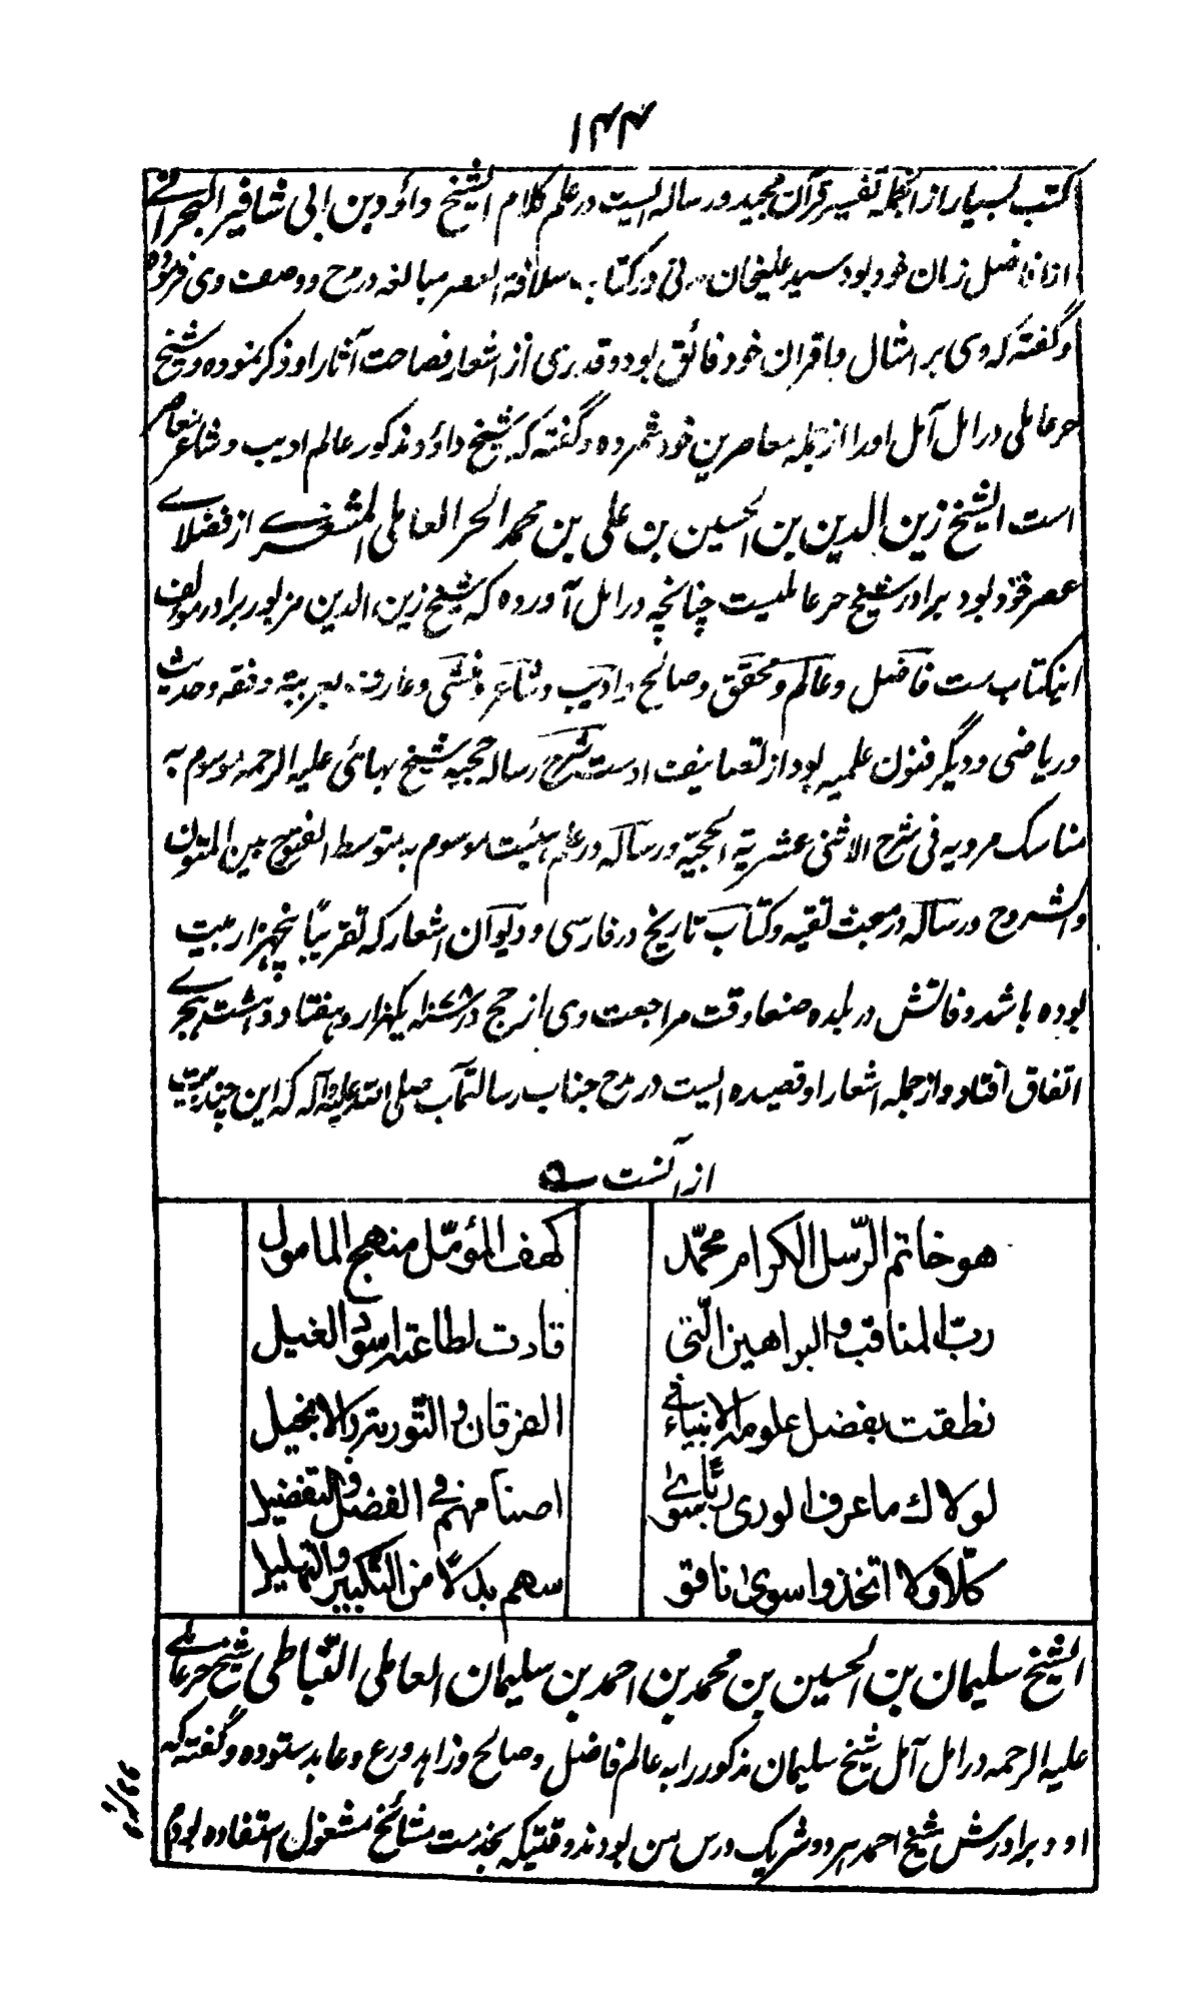 ۱۴۴
کتب بسیار از انجمله تفسیر قرآن مجید و رساله ایست در علم کلام الشیخ داؤد بن ابی شافیر البحرانے
از افاضل زمان خود بود سید علیخان مدنی در کتاب سلافة العصر مبالغه در مدح و وصف وی فرموده
و گفته که وی بر امثال و اقران خود فائق بود و قدری از اشعار فصاحت آثار او ذکر نموده و شیخ
حر عاملی در امل آمل او را از جمله معاصرین خود شمرده و گفته که شیخ داؤد مذکور عالم ادیب و شاعر معاصر
است الشیخ زین الدین بن الحسین بن علی بن محمد الحر العاملی المشغرے از فضلاے
عصر خود بود برادر شیخ حر عاملیست چنانچه در امل آورده که شیخ زین الدین مزبور برادر مولف
اینکتاب ست فاضل و عالم و محقق و صالح و ادیب و شاعر و منشی و عارف بعربیة و فقه و حدیث
و ریاضی و دیگر فنون علمیه بود از تصانیف اوست شرح رساله حجیه شیخ بهائی علیه الرحمه موسوم به
مناسک مرویه فی شرح الاثنی عشریة الحجیة و رساله در علم هیئت موسوم به متوسط الفتوح بین المتون
والشروح و رساله در مبحث تقیه و کتاب تاریخ در فارسی و دیوان اشعار که تقریبًا پنجهزار بیت
بوده باشد و فاتش در بلده صنعا وقت مراجعت وی از حج در ۱۰۷۸ یکهزار و هفتاد و هشت هجرے
اتفاق افتاد و از جمله اشعار او قصیده ایست در مدح جناب رسالتمآب صلی الله علیه وآله که این چند بیت
از آنست ے
هو خاتم الرّسل الکرام محمّد کهف المؤمّل منهج المامول
ربّ المناقب والبراهین الّتی قادت لطاعته اسود الغیل
نطقت بفضل علومه الانبیاء فی الفرقان والتّوریة والانجیل
لولاك ما عرف الوری ربًّا سوىٰ اصنامهم فی الفضل والتفضیل
كلّا ولا اتخذوا سوىٰ ناقو سهم بدلًا من التّکبیر والتهلیل
الشیخ سلیمان بن الحسین بن محمد بن احمد بن سلیمان العاملی النّباطی شیخ حر عاملے
علیه الرحمه در امل آمل شیخ سلیمان مذکور را به عالم فاضل و صالح و زاهد و ورع و عابد ستوده و گفته که
او و برادرش شیخ احمد هر دو شریک درس من بودند وقتیکه بخدمت مشائخ مشغول استفاده بودم